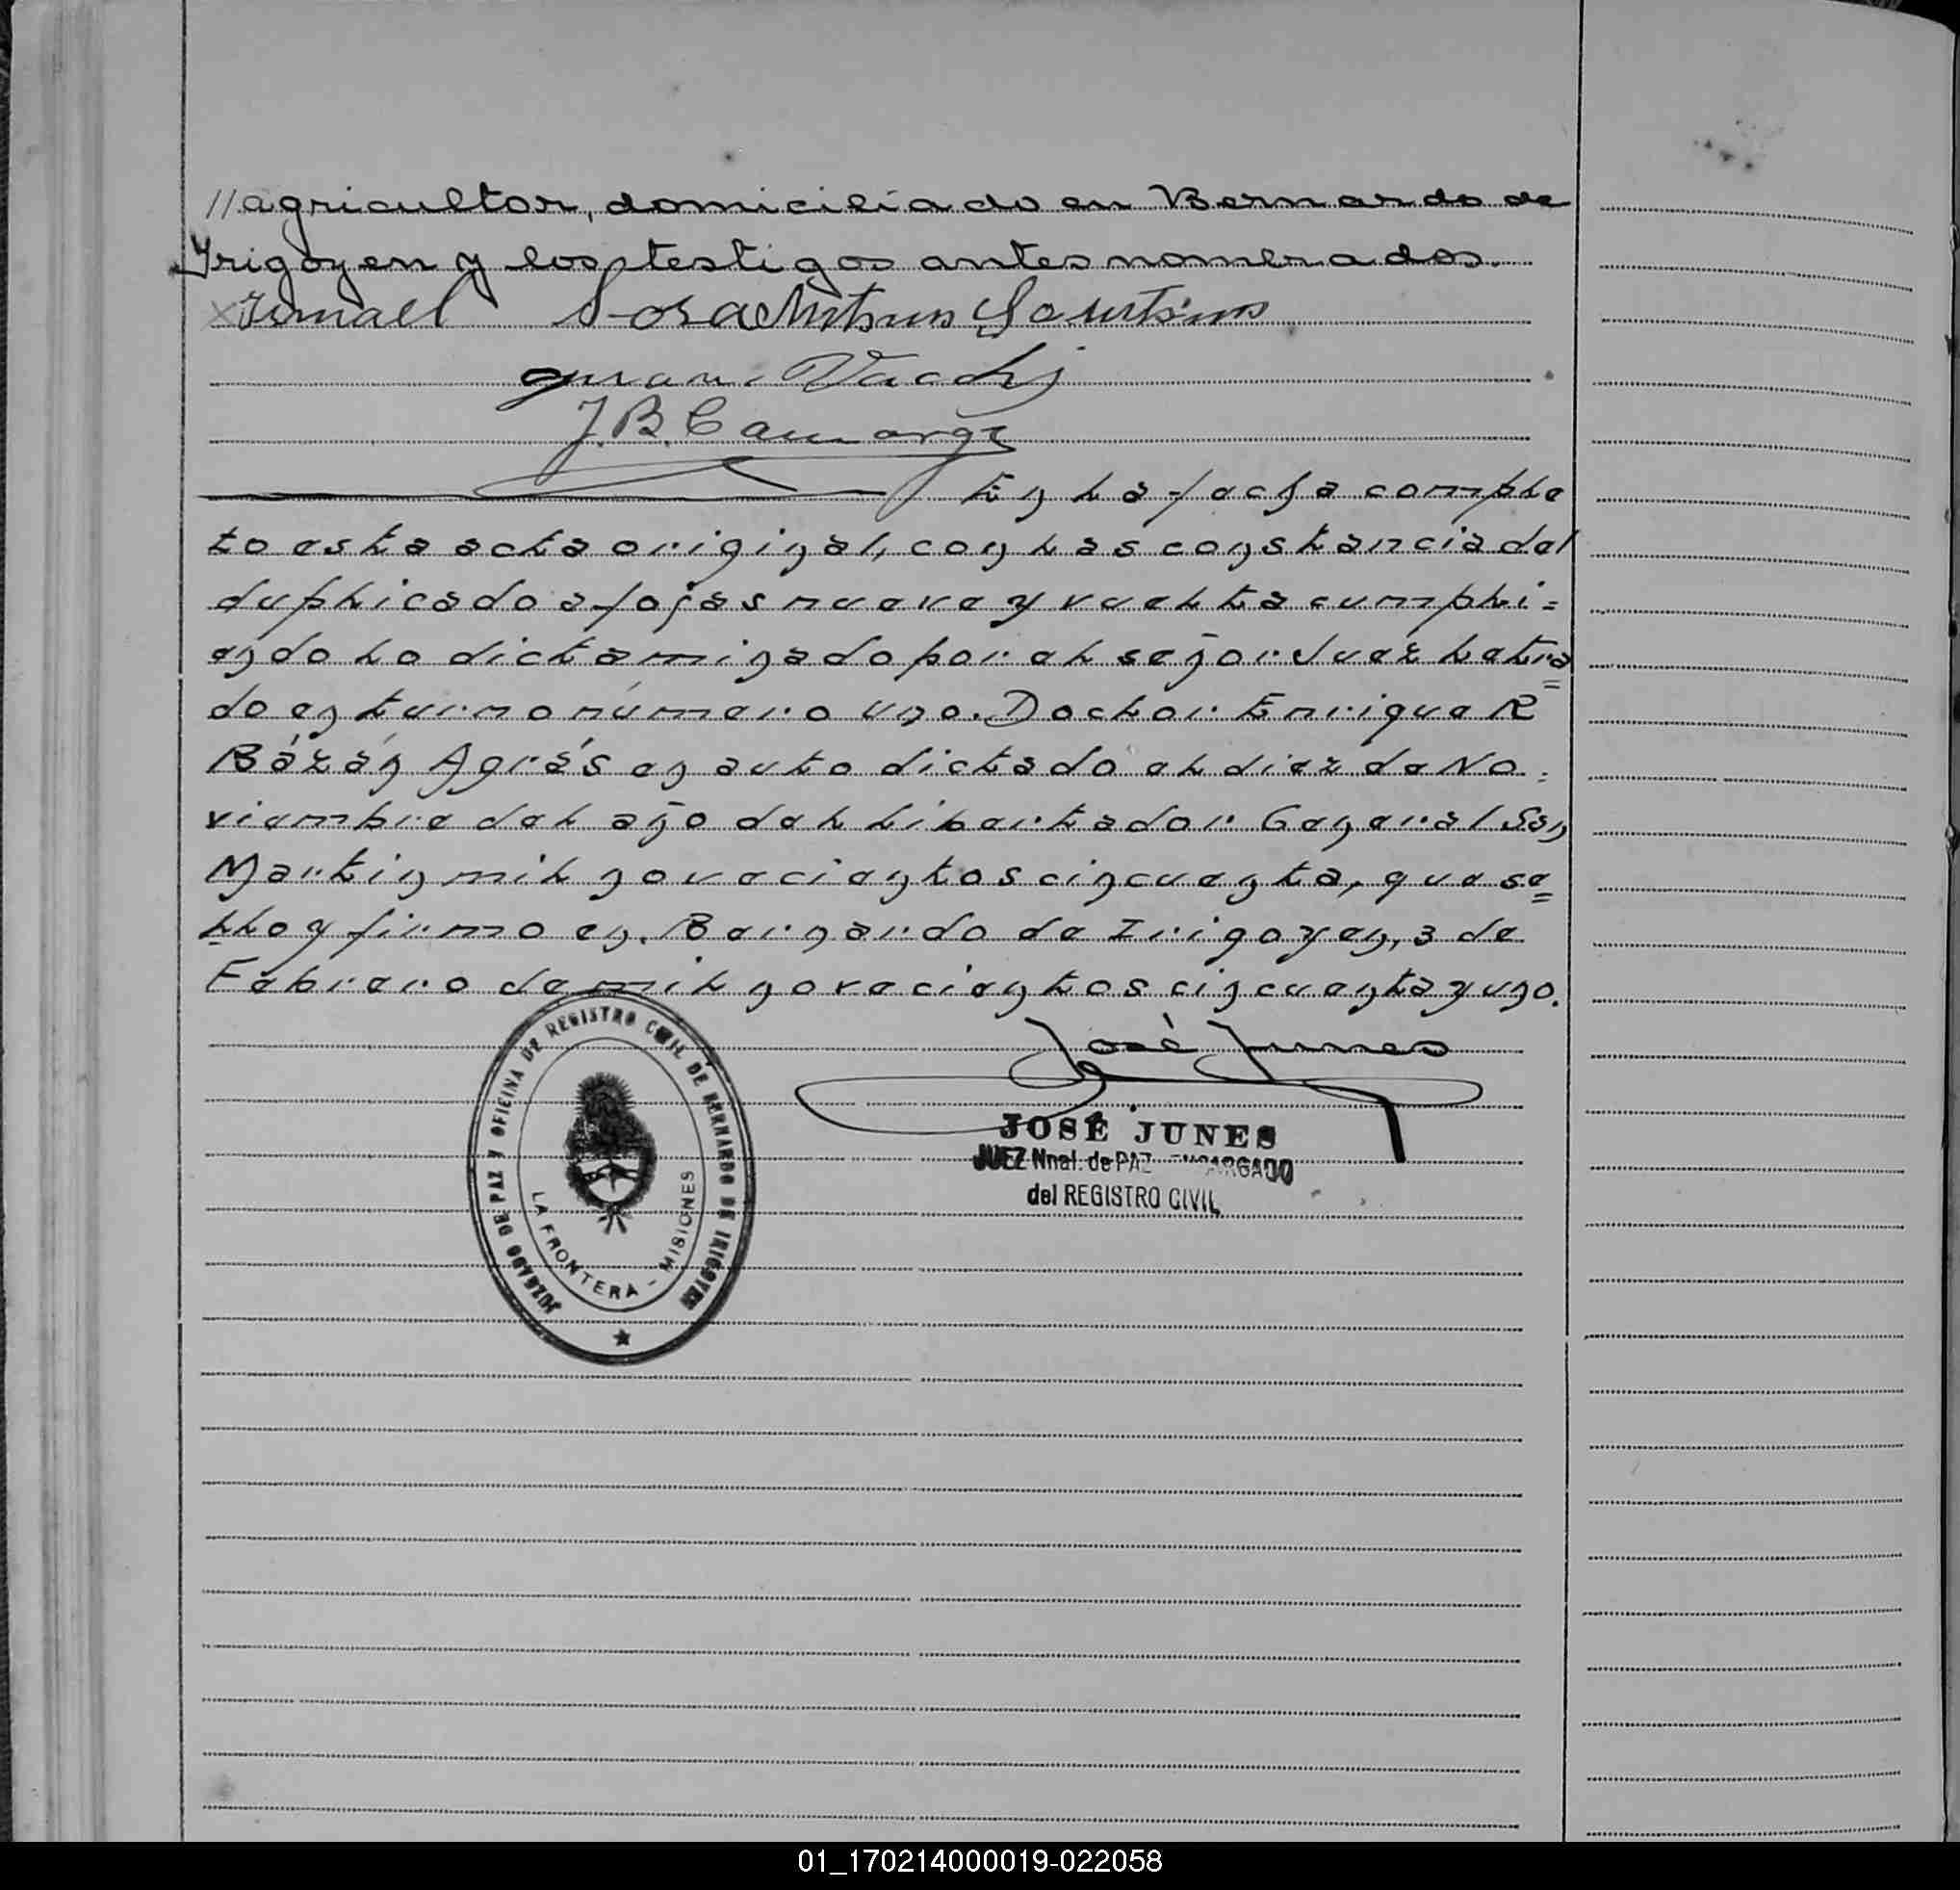 //agricultor, domiciliado en Bernardo de
Yrigoyen y los testigos antes nombrados.
Ismael Sosa
Juan Vacchi
J. B. Camargo
En la fecha comple
to esta acta original, con las constancia del
duplicado a fojas nueve y vuelta cumpli=
endo lo dictaminado por el señor Juez letra
do en turno número uno. Doctor Enrique R
Bázán Agrás en auto dictado el diez de No=
viembre del año del Libertador General San
Martin mil novecientos cincuenta, que se
llo y firmo en Bernardo de Irigoyen, 3 de
Febrero de mil novecientos cincuenta y uno.
José Junes
JOSÉ JUNES
JUEZ Nnal. de PAZ ENCARGADO
del REGISTRO CIVIL
JUZGADO DE PAZ Y OFICINA DE REGISTRO CIVIL DE BERNARDO DE IRIGOYEN
LA FRONTERA - MISIONES
01_170214000019-022058